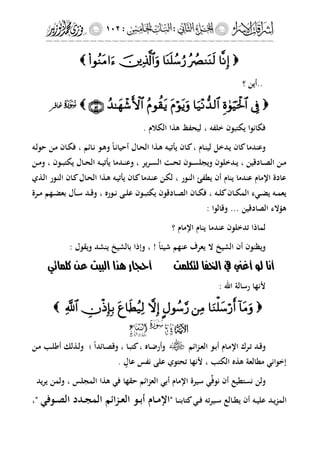 ١٠٢
﴿ إِنَّا لَنَنصُرُ رُسُلَنَا وَالَّذِينَ ءَامَنُوا ﴾
..أين ؟
﴿ فِي الْحَيَوٰةِ الدُّنْيَا وَيَوْمَ يَقُومُ الْأَشْهَٰدُ ۝ ﴾ سورة غافر
فكانوا يكتبون خلفه ، ليحفظ هذا الكلام .
وعندما كان يدخل لينام ، كان يأتيه هذا الحال أحياناً وهو نائم ، فكان من حوله
من الصادقين ، يدخلون ويجلسون تحت السرير ، وعندما يأتيه الحال يكتبون ، ومن
عادة الإمام عندما ينام أن يطفئ النور ، لكن عندما كان يأتيه هذا الحال كان النور الذي
يعمه يضيء المكان كله ، فكان الصادقون يكتبون على نوره ، وقد سأل بعضهم مرة
هؤلاء الصادقين ... وقالوا :
لماذا تدخلون عندما ينام الإمام ؟
ويظنون أن الشيخ لا يعرف عنهم شيئاً ! ، وإذا بالشيخ ينشد ويقول :
أنا لو أغنى في الخفا لتكلمت أحجار هذا البيت عن كلماتي
لأنها رسالة الله :
﴿ وَمَآ أَرْسَلْنَا مِن رَّسُولٍ إِلَّا لِيُطَاعَ بِإِذْنِ اللَّهِ ﴾
وقد ترك الإمام أبو العزائم وأرضاه ، كتبا ، وقصائداً ؛ ولذلك أطلب من
إخواني مطالعة هذه الكتب ، لأنها تحتوي على نفس عالٍ .
ولن نستطيع أن نوفّي سيرة الإمام أبي العزائم حقها في هذا المجلس ، ولمن يريد
المزيد عليه أن يطالع سيرته في كتابنا "الإمام أبو العزائم المجدد الصوفي"،